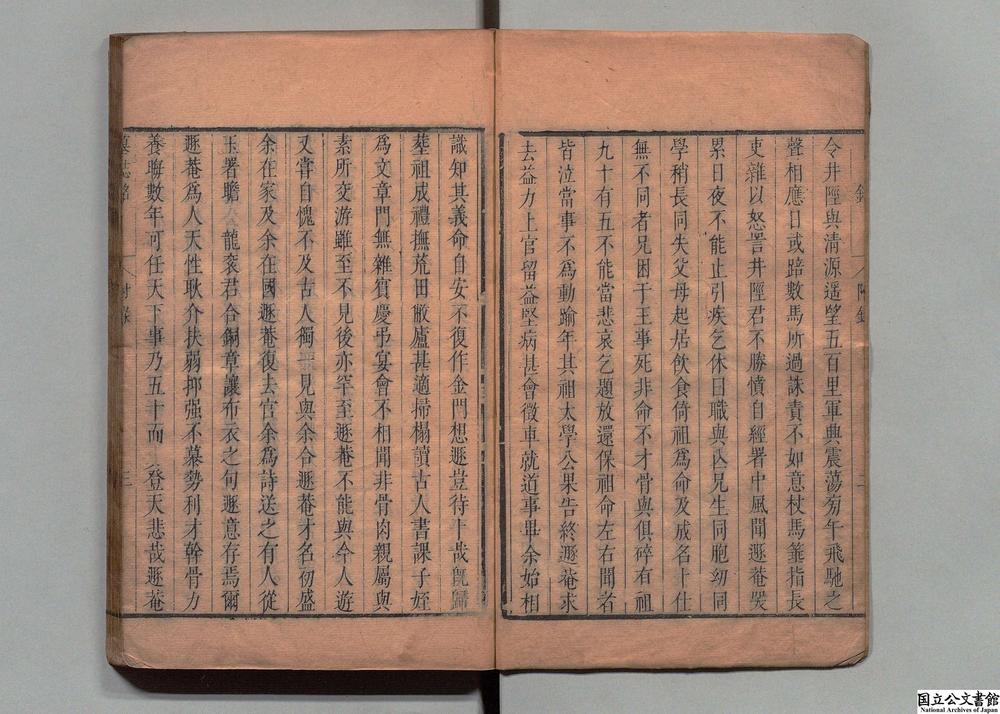 令井陘與清源遥望五百里軍典震蕩旁午飛馳之
聲相應日或踣數馬所過誅責不如意杖馬箠指長
吏雜以怒詈井陘君不勝憤自經署中風聞遯菴哭
累日夜不能止引疾乞休曰職與亾兄生同胞幼同
學稍長同失父母起居飲食倚祖爲命及成名十仕
無不同者兄困于王事死非命不才骨與俱碎有祖
九十有五不能當悲哀乞題放還保祖命左右聞者
皆泣當事不爲動踰年其祖太學公果告終遯菴求
去益力上官留益堅病甚會徵車就道事畢余始相
識知其義命自安不復作金門想遯豈待卜哉旣歸
塟祖成禮撫荒田敝廬甚適掃榻讀古人書課子姪
爲文章門無雜賓慶弔宴會不相聞非骨肉親屬與
素所交游雖至不見後亦罕至遯菴不能與今人遊
又嘗自愧不及古人獨 見與余合遯菴才名初盛
余在家及余在國遯菴復去官余爲詩送之有人從
玉署瞻 龍衮君合銅章讓布衣之句遯意存焉爾
遯菴爲人天性耿介扶弱抑强不慕勢利才幹骨力
養晦數年可任天下事乃五十而 登天悲哉遯菴
墓誌銘 附錄 三
国立公文書館
National Archives of Japan